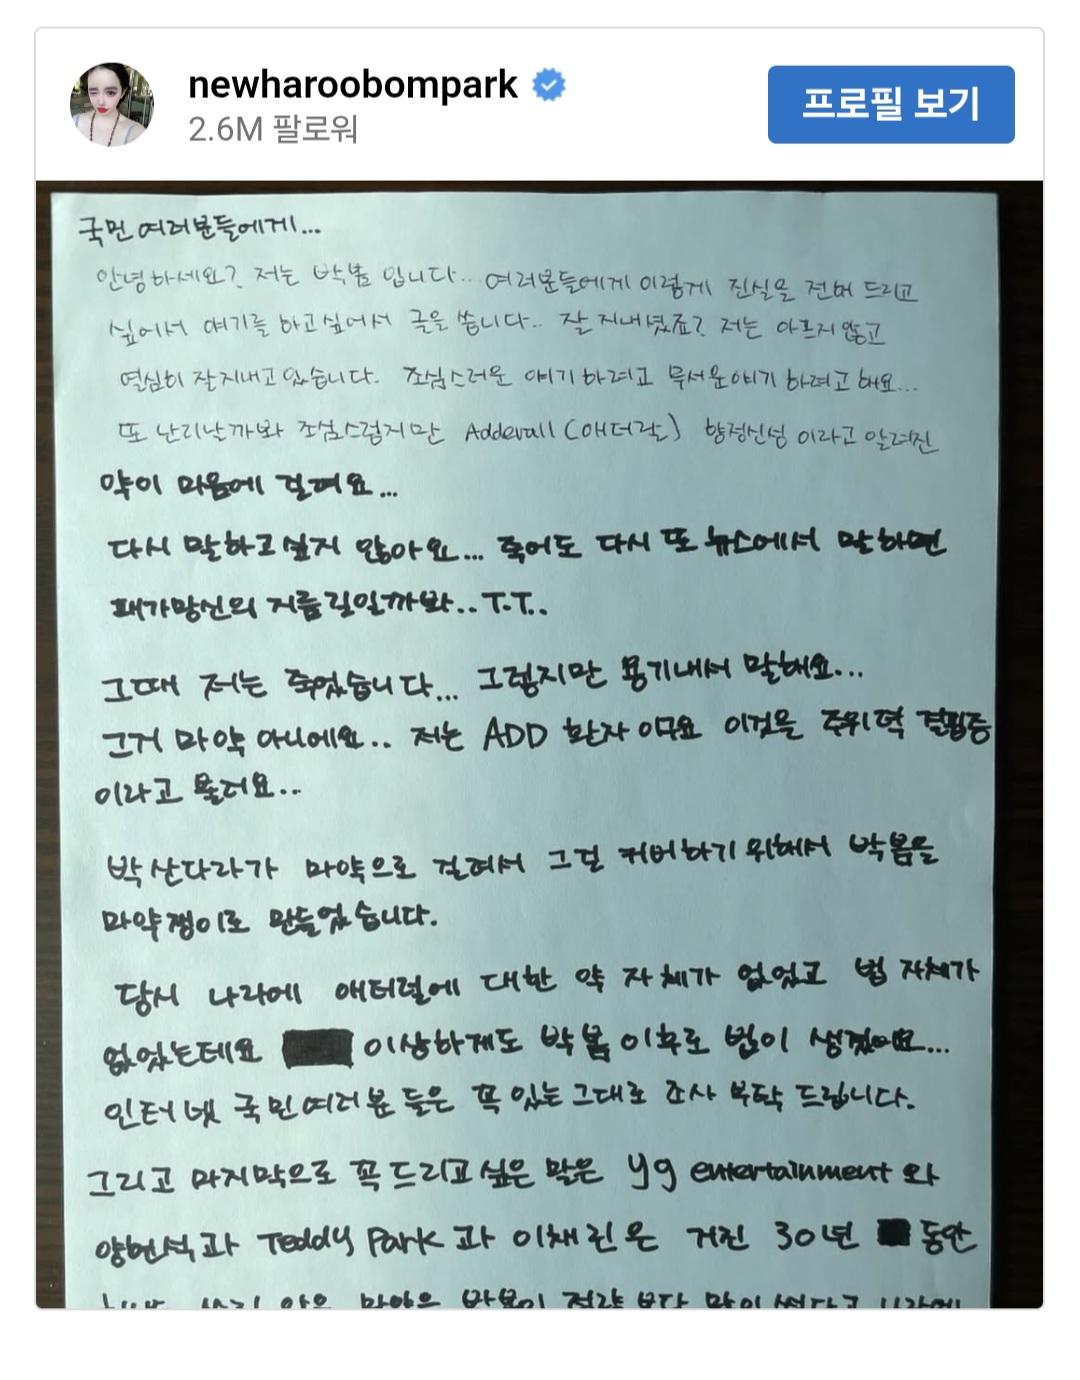 newharoobompark
2.6M 팔로워
프로필 보기
국민 여러분들에게...
안녕하세요? 저는 박봄 입니다... 여러분들에게 이렇게 진실을 전해 드리고
싶어서 얘기를 하고싶어서 글을 씁니다.. 잘 지내셨죠? 저는 아프지 않고
열심히 잘지내고 있습니다. 조심스러운 얘기하려고 무서운얘기 하려고 해요...
또 난리날까봐 조심스럽지만 Adderall (애더럴) 향정신성 이라고 알려진
약이 마음에 걸려요...
다시 말하고싶지 않아요... 죽어도 다시 또 뉴스에서 말하면
패가망신의 지름길일까봐..T.T..
그때 저는 죽었습니다... 그렇지만 용기내서 말해요...
그거 마약 아니에요.. 저는 ADD 환자 이구요 이것을 주위력 결핍증
이라고 불러요...
박산다라가 마약으로 걸려서 그걸 커버하기위해서 박봄을
마약쟁이로 만들었습니다.
당시 나라에 애더럴에 대한 약 자체가 없었고 법 자체가
없었는데요 이상하게도 박봄이후로 법이 생겼어요...
인터넷 국민여러분 들은 꼭 있는그대로 조사 부탁 드립니다.
그리고 마지막으로 꼭드리고싶은 말은 yg entertainment 와
양현석과 Teddy Park 과 이채린은 거진 30년 동안
마약을 박봄이 정량 보다 많이 썼다고 나라에